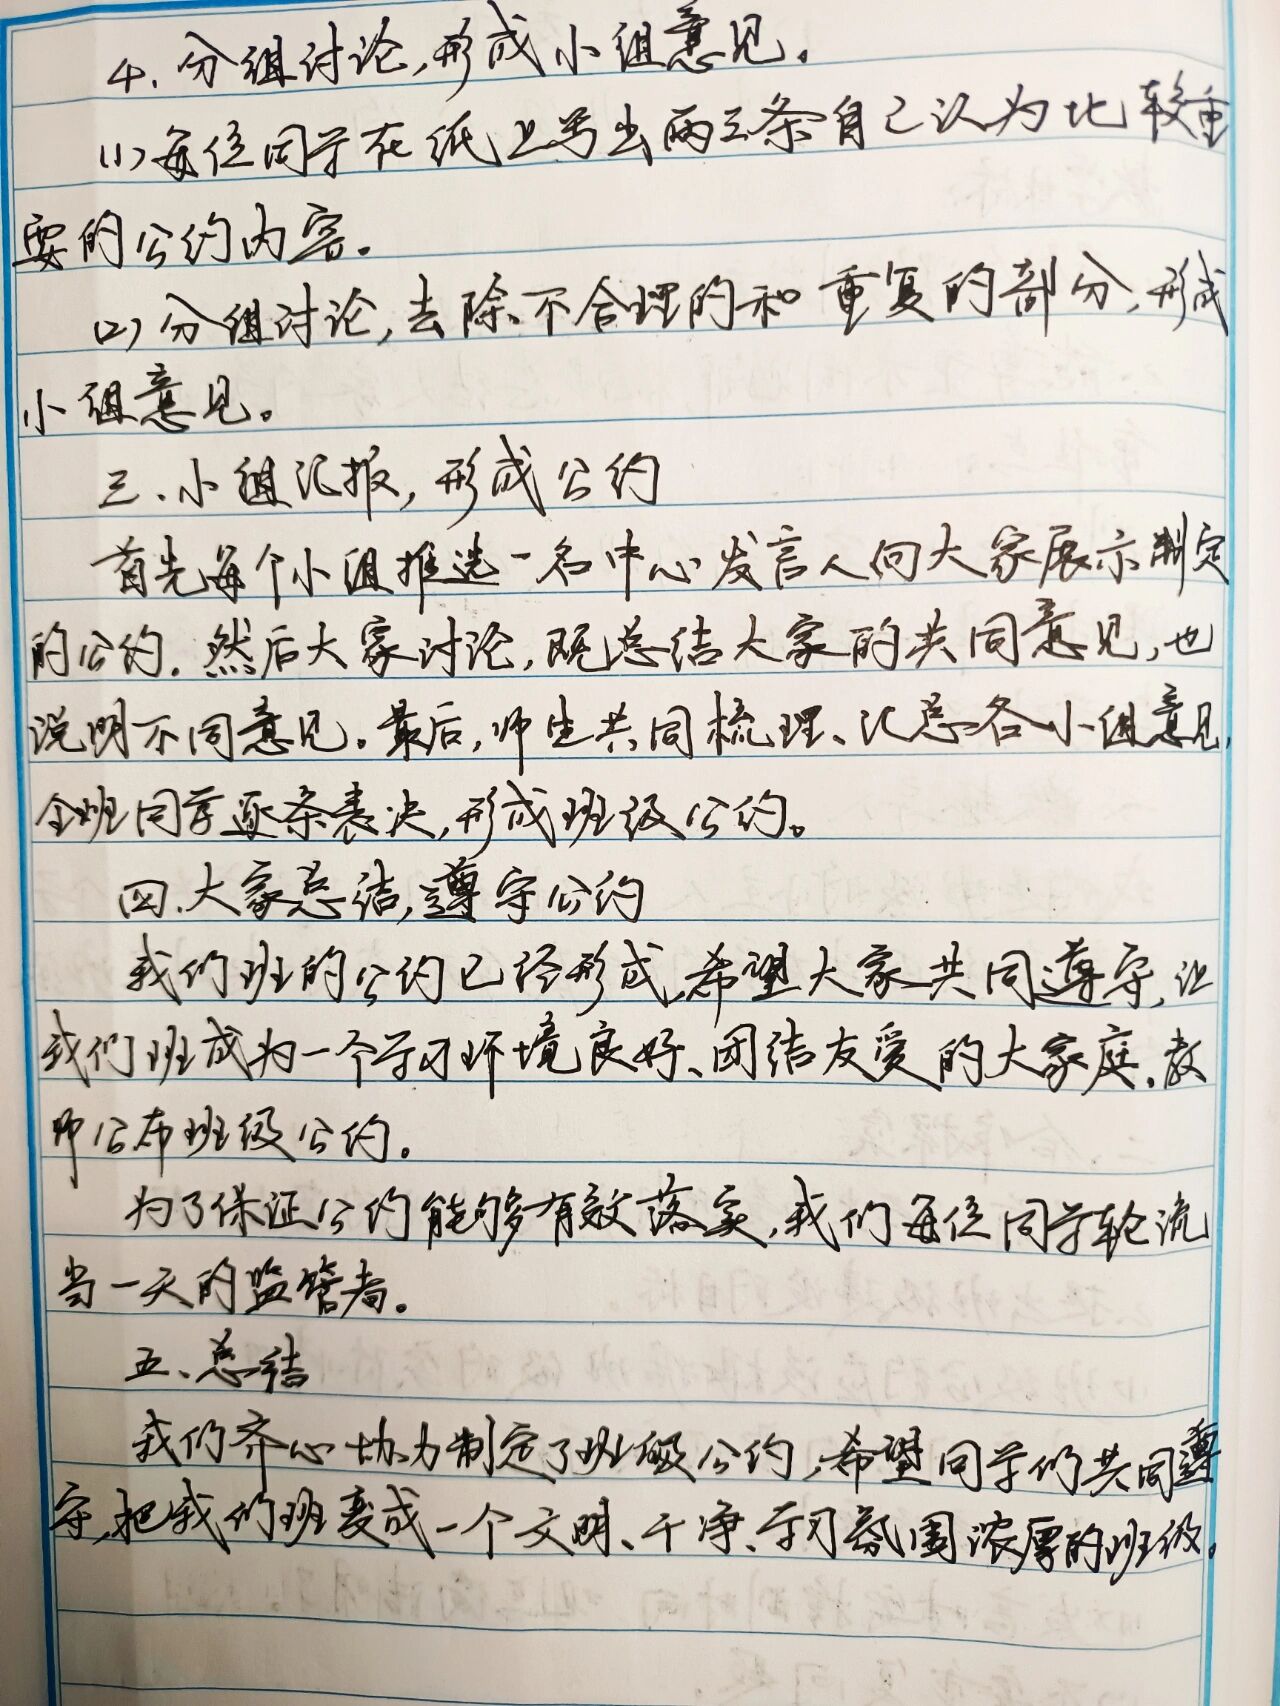 4.分组讨论,形成小组意见。
(1)每位同学在纸上写出两三条自己认为比较重
要的公约内容。
(2)分组讨论,去除不合理的和重复的部分,形成
小组意见。
三、小组汇报,形成公约
首先每个小组推选一名中心发言人向大家展示制定
的公约.然后大家讨论,既总结大家的共同意见,也
说明不同意见。最后,师生共同梳理、汇总各小组意见,
全班同学逐条表决,形成班级公约。
四、大家总结,遵守公约
我们班的公约已经形成,希望大家共同遵守,让
我们班成为一个学习环境良好、团结友爱的大家庭.教
师公布班级公约。
为了保证公约能够有效落实,我们每位同学轮流
当一天的监管者。
五、总结
我们齐心协力制定了班级公约,希望同学们共同遵
守,把我们班变成一个文明、干净、学习氛围浓厚的班级。